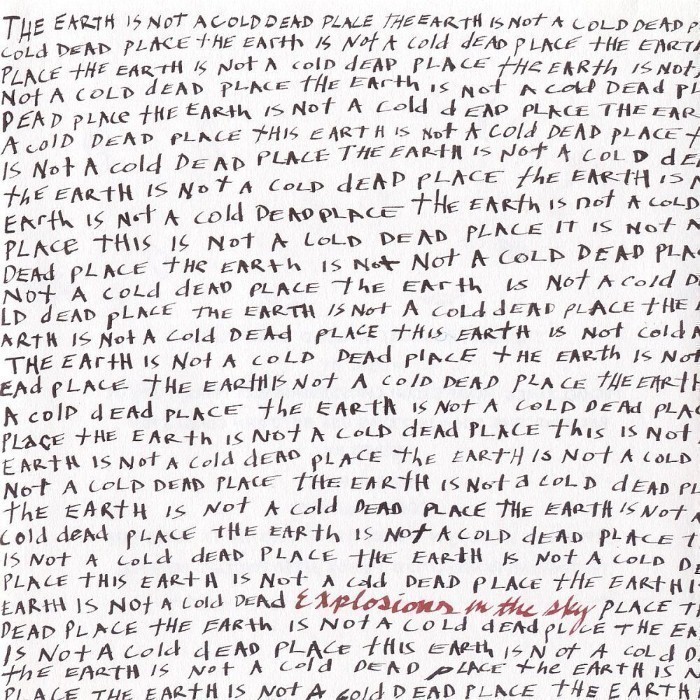 THE EARTH IS NOT A COLD DEAD PLACE THE EARTH IS NOT A COLD DEAD P
COLD DEAD PLACE tHE EARth IS Not A COld dEAD PLACE tHE EARt
PLACE tHE EARtH IS Not A COLD dEAD PLACE tHE EARth IS Not
Not A COLD dEAD PLACE tHE EARth is Not A COLD DEAD PL
DEAD PLACE tHE EARtH IS Not A Cold dEAD PLACE THE EAR
A COLD DEAD PLACE tHIS EARTH IS Not A Cold DEAD PLACE T
IS Not A cold DEAD PLACE THE EARtH IS Not A COLD dE
tHE EARTH IS Not A COLD dEAD PLACE tHE EARTH IS
EARth IS Not A cold DEAD PLACE tHE EARth is not A COLD
PLACE THIS IS Not A COLD DEAD PLACE IT IS NOt A
DEAd PLACE tHE EARth IS Not Not A COLD DEAD PLA
NOt A COLd dEAD PLACE tHE EARth is Not A COld D
LD dEAD PLACE THE EARTH IS Not A COLD dEAD PLACE tHE
ARTH IS Not A Cold DEAd PLACE tHIS EARTH IS Not cold A
THE EARtH IS Not A COLD DEAd PlACE tHE EARth IS Not
EAd PLACE tHE EARtH IS Not A COLD DEAD PLACE THE EARtH
A COLD dEAd PLACE tHE EARth IS Not A COLD DEAd PLA
PLACE tHE EARth IS Not A COLD dEAd PLACE this IS Not
EARTH IS Not A cold dEAD PLACE tHE EARTH IS Not A COLD
Not A COLD DEAD PLACE THE EARTH IS Not a COLD dEAD PL
tHE EARTH IS Not A COld DEAD PLACE THE EARTH IS Not A
COld dEAd PLACE THE EARth IS Not A COLD dEAD PLACE t
IS Not A COLd dEAD PLACE tHE EARTH IS NOt A COLD DE
PLACE THIS EARTH IS Not A COLD DEAD PLACE tHE EARtH I
EARTH IS Not A COLD DEAD Explosions in the sky PLACE T
DEAD PLACE tHE EARtH IS NOt A COLd dEAd PLACE THE EA
IS Not A COLD dEAD PLACE tHIS EARth is Not A COLD D
tHE EARTH IS Not A COld DEAD PLACE tHE EARtH IS
PLACE THE EARTH IS Not A COLD DEAD PLACE THE EARTH